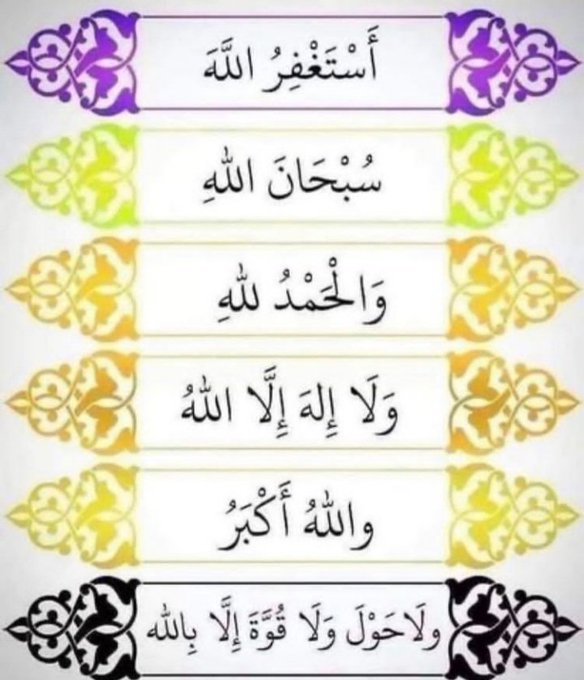 أَسْتَغْفِرُ اللَّهَ
سُبْحَانَ اللهِ
وَالْحَمْدُ للهِ
وَلَا إِلهَ إِلَّا اللهُ
واللهُ أَكْبَرُ
ولَاحَوْلَ وَلَا قُوَّةَ إِلَّا بِالله